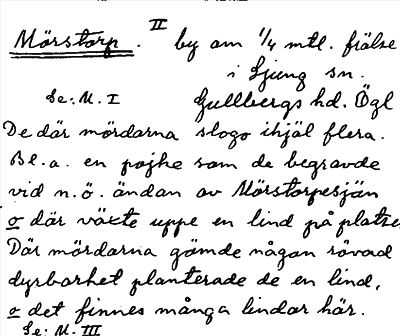 Mörstorp. II by om 1/4 mtl. frälse
i Ljung sn.
Se: M. I Gullbergs hd. Ögl
De där mördarna slogo ihjäl flera.
Bl. a. en pojke som de begravde
vid n.ö. ändan av Mörstorpesjän
o där växte uppe en lind på platse
Där mördarna gömde någon rövad
dyrbarhet planterade de en lind,
o det finnes många lindar här.
Se: M. III